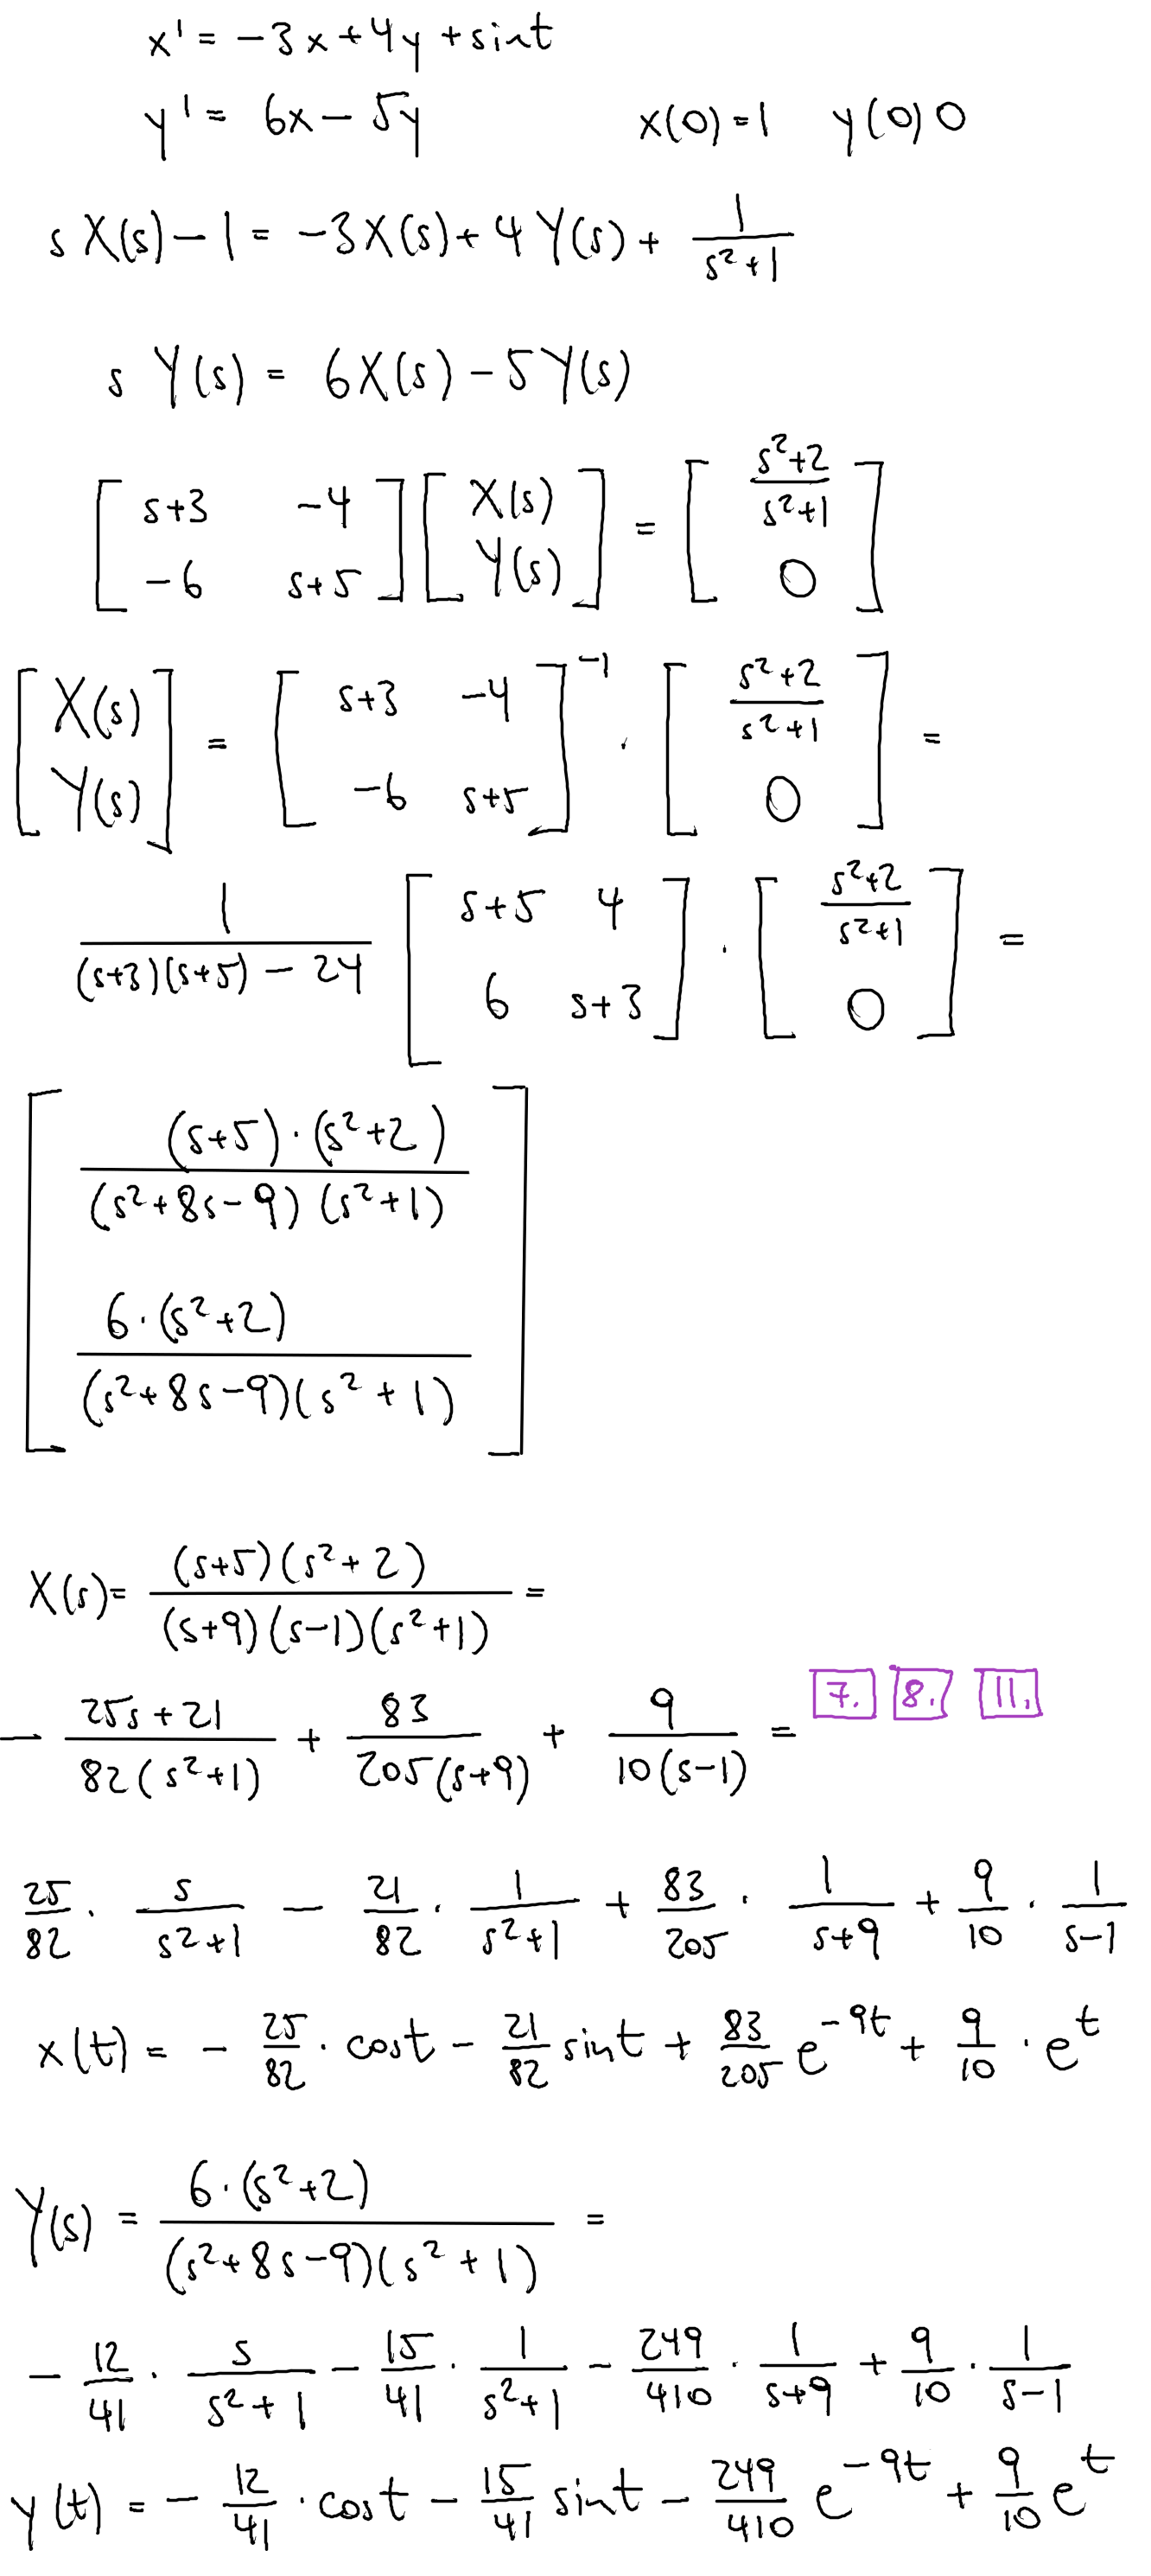 x' = -3x + 4y + sint
y' = 6x - 5y x(0) = 1 y(0) 0
s X(s) - 1 = -3X(s) + 4Y(s) + \frac{1}{s^2+1}
s Y(s) = 6X(s) - 5Y(s)
\begin{bmatrix} s+3 & -4 \\ -6 & s+5 \end{bmatrix} \begin{bmatrix} X(s) \\ Y(s) \end{bmatrix} = \begin{bmatrix} \frac{s^2+2}{s^2+1} \\ 0 \end{bmatrix}
\begin{bmatrix} X(s) \\ Y(s) \end{bmatrix} = \begin{bmatrix} s+3 & -4 \\ -6 & s+5 \end{bmatrix}^{-1} \cdot \begin{bmatrix} \frac{s^2+2}{s^2+1} \\ 0 \end{bmatrix} =
\frac{1}{(s+3)(s+5) - 24} \begin{bmatrix} s+5 & 4 \\ 6 & s+3 \end{bmatrix} \cdot \begin{bmatrix} \frac{s^2+2}{s^2+1} \\ 0 \end{bmatrix} =
\begin{bmatrix} \frac{(s+5) \cdot (s^2+2)}{(s^2+8s-9)(s^2+1)} \\ \frac{6 \cdot (s^2+2)}{(s^2+8s-9)(s^2+1)} \end{bmatrix}
X(s) = \frac{(s+5)(s^2+2)}{(s+9)(s-1)(s^2+1)} =
- \frac{25s+21}{82(s^2+1)} + \frac{83}{205(s+9)} + \frac{9}{10(s-1)} = 7. 8. 11.
\frac{25}{82} \cdot \frac{s}{s^2+1} - \frac{21}{82} \cdot \frac{1}{s^2+1} + \frac{83}{205} \cdot \frac{1}{s+9} + \frac{9}{10} \cdot \frac{1}{s-1}
x(t) = - \frac{25}{82} \cdot cost - \frac{21}{82} sint + \frac{83}{205} e^{-9t} + \frac{9}{10} \cdot e^t
Y(s) = \frac{6 \cdot (s^2+2)}{(s^2+8s-9)(s^2+1)} =
- \frac{12}{41} \cdot \frac{s}{s^2+1} - \frac{15}{41} \cdot \frac{1}{s^2+1} - \frac{249}{410} \cdot \frac{1}{s+9} + \frac{9}{10} \cdot \frac{1}{s-1}
y(t) = - \frac{12}{41} \cdot cost - \frac{15}{41} sint - \frac{249}{410} e^{-9t} + \frac{9}{10} e^t